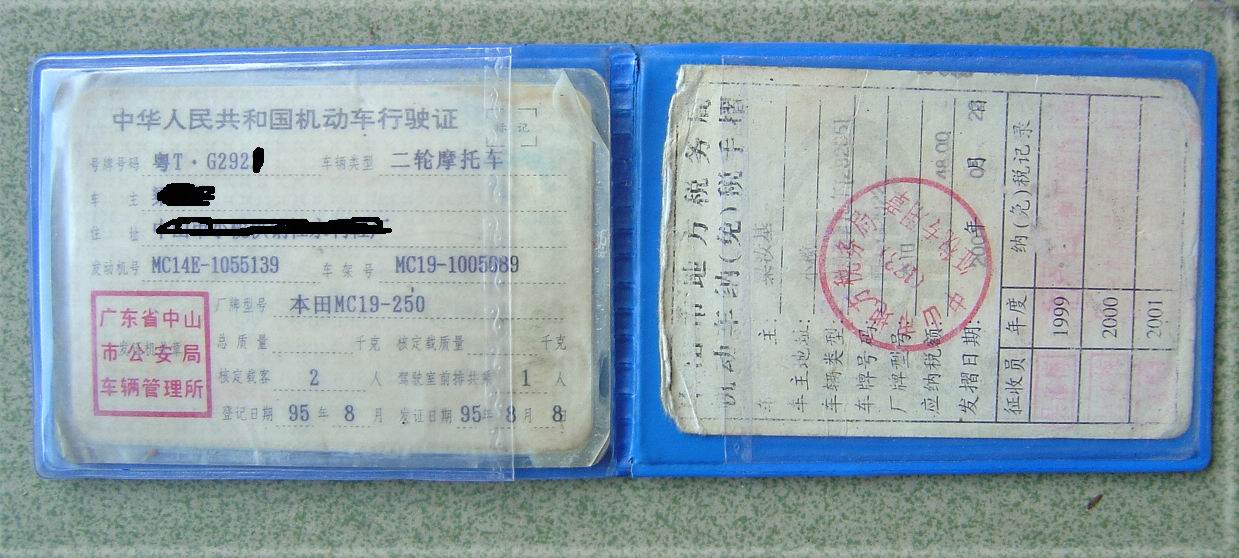 中华人民共和国机动车行驶证
标记
号牌号码 粤T·G292 车辆类型 二轮摩托车
车主
住址
发动机号 MC14E-1055139 车架号 MC19-1005689
厂牌型号 本田MC19-250
总质量 千克 核定载质量 千克
核定载客 2 人 驾驶室前排共乘 1 人
登记日期 95年8月 发证日期 95年8月8日
发证机关章
广东省中山
市公安局
车辆管理所
市地方税务局
机动车纳(免)税手摺
车主
车主地址:
车辆类型
车牌号码
厂牌型号
应纳税额: 48.00
发摺日期: 年 月
征收员 年度 纳(免)税记录
1999
2000
2001